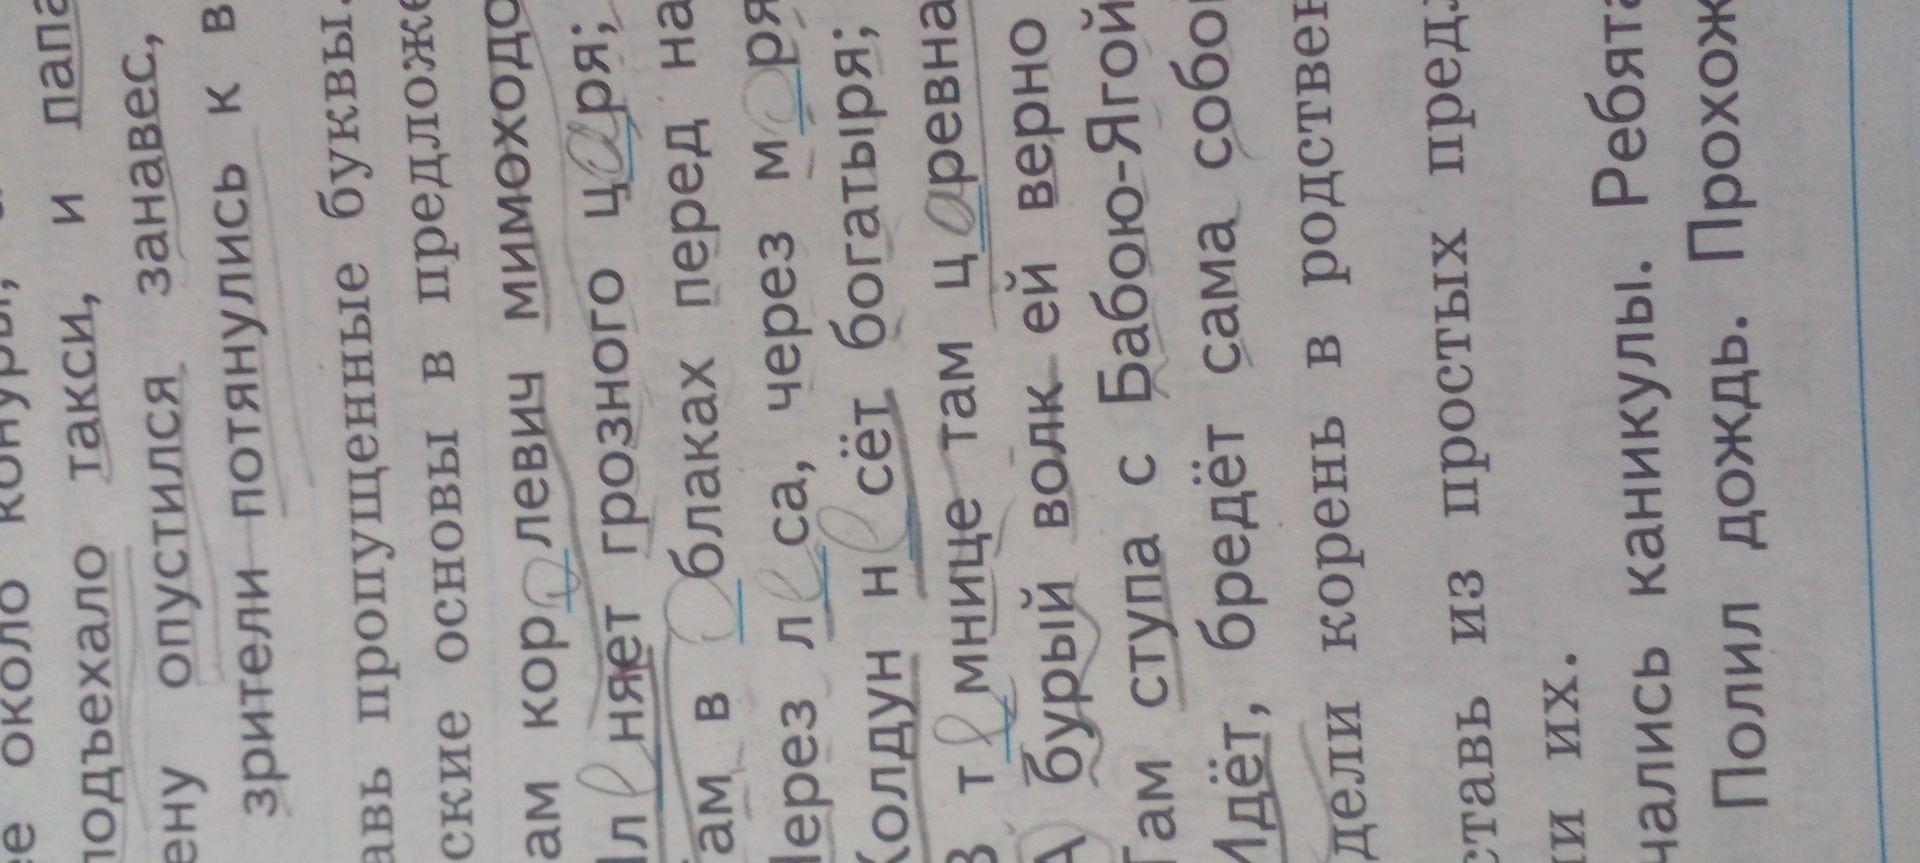 около конуры,
подъехало такси, и папа
ену опустился занавес,
зрители потянулись к в
авь пропущенные буквы.
ские основы в предложе
ам королевич мимоходо
пленяет грозного царя;
ам в облаках перед на
через леса, через моря
Колдун несёт богатыря;
В темнице там царевна
А бурый волк ей верно
Там ступа с Бабою-Ягой
Идёт, бредёт сама собо
дели корень в родствен
ставь из простых предл
и их.
чались каникулы. Ребята
Полил дождь. Прохож